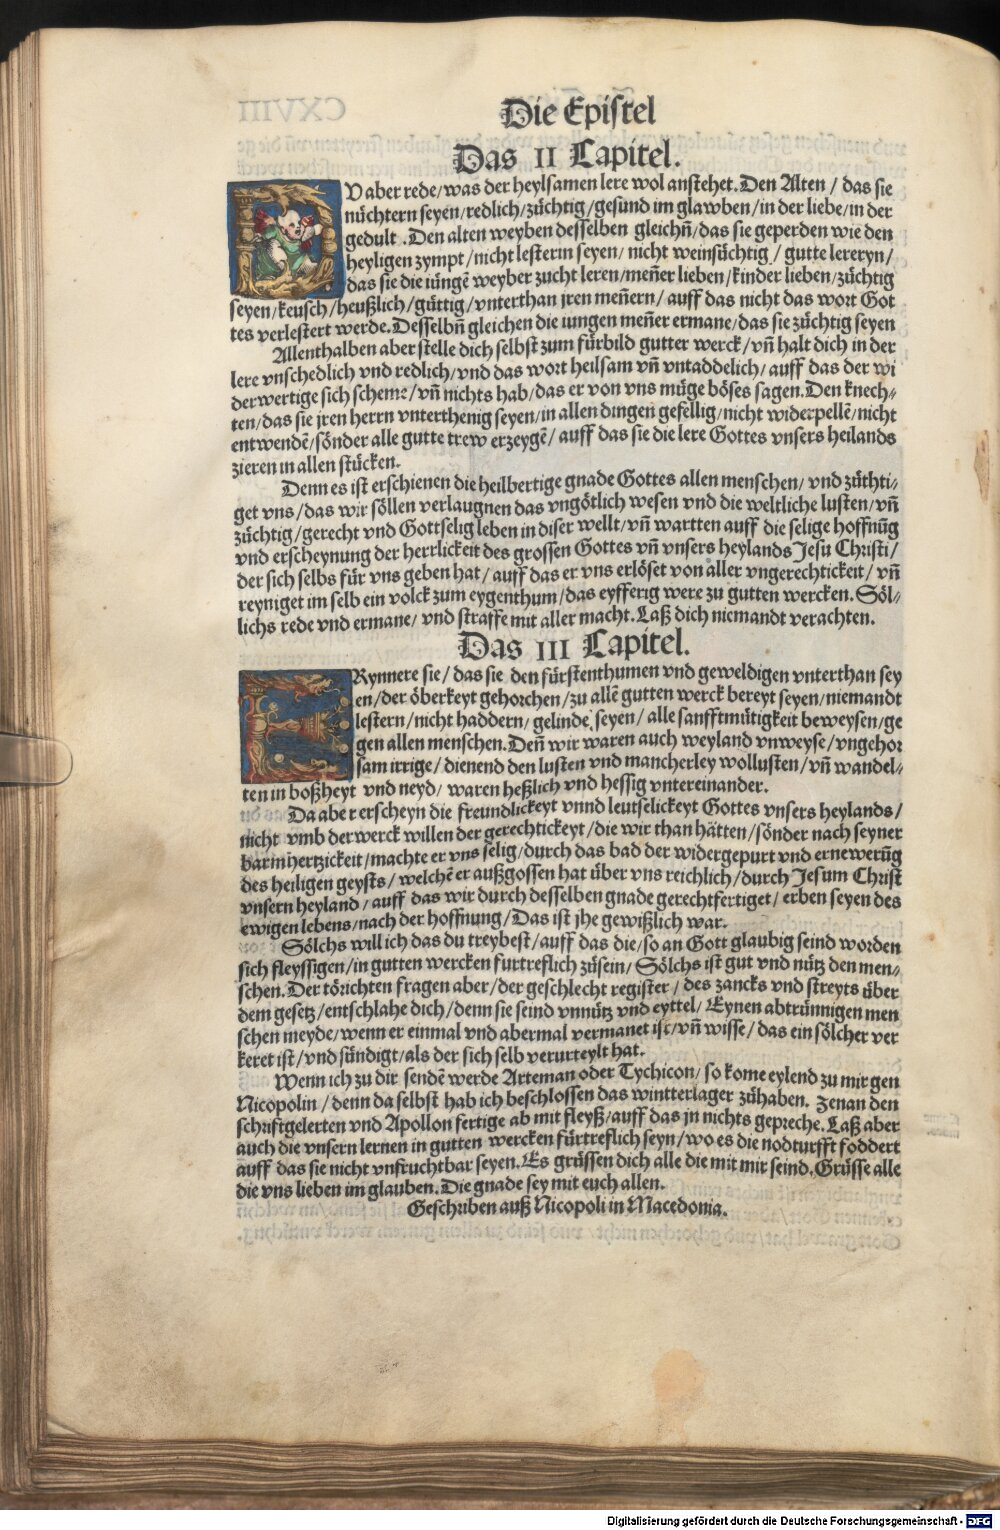 Die Epistel
Das II Capitel.
DV aber rede/was der heylsamen lere wol anstehet. Den Alten / das sie
nüchtern seyen/redlich/züchtig/gesund im glawben/in der liebe/in der
gedult . Den alten weyben desselben gleichñ/das sie geperden wie den
heyligen zympt/nicht lesterin seyen/ nicht weinsüchtig / gutte lereryn/
das sie die iüngẽ weyber zucht leren/meñer lieben/kinder lieben/züchtig
seyen/keusch/heußlich/güttig/vnterthan jren meñern/ auff das nicht das wort Got
tes verlestert werde. Desselbñ gleichen die iungen meñer ermane/das sie züchtig seyen
Allenthalben aber stelle dich selbst zum fürbild gutter werck/vñ halt dich in der
lere vnschedlich vnd redlich/vnd das wort heilsam vñ vntaddelich/ auff das der wi
derwertige sich scheme/vñ nichts hab/das er von vns müge böses sagen. Den knech⸗
ten/das sie jren herrn vnterthenig seyen/in allen dingen gefellig/nicht widerpellẽ/nicht
entwendẽ/sönder alle gutte trew erzeygẽ/ auff das sie die lere Gottes vnsers heilands
zieren in allen stücken.
Denn es ist erschienen die heilbertige gnade Gottes allen menschen/ vnd züthti⸗
get vns/das wir söllen verlaugnen das vngötlich wesen vnd die weltliche lusten/vñ
züchtig/gerecht vnd Gottselig leben in diser wellt/vñ wartten auff die selige hoffnũg
vnd erscheynung der herrlickeit des grossen Gottes vñ vnsers heylands Jesu Christi/
der sich selbs für vns geben hat/ auff das er vns erlöset von aller vngerechtickeit/ vñ
reyniget im selb ein volck zum eygenthum/das eyfferig were zu gutten wercken. Söl⸗
lichs rede vnd ermane/ vnd straffe mit aller macht. Laß dich niemandt verachten.
Das III Capitel.
ERynnere sie/ das sie den fürstenthumen vnd geweldigen vnterthan sey
en/der öberkeyt gehorchen/zu allẽ gutten werck bereyt seyen/niemandt
lestern/nicht haddern/ gelinde seyen/ alle sanfftmütigkeit beweysen/ge
gen allen menschen. Deñ wir waren auch weyland vnweyse/vngehor
sam irrige/ dienend den lusten vnd mancherley wollusten/vñ wandel⸗
ten in boßheyt vnd neyd/ waren heßlich vnd hessig vntereinander.
Da aber erscheyn die freundlickeyt vnnd leutselickeyt Gottes vnsers heylands/
nicht vmb der werck willen der gerechtickeyt/die wir than hätten/sönder nach seyner
barmhertzickeit/machte er vns selig/durch das bad der widergepurt vnd ernewerũg
des heiligen geysts/ welchẽ er außgossen hat über vns reichlich/durch Jesum Christ
vnsern heyland/ auff das wir durch desselben gnade gerechtfertiget/ erben seyen des
ewigen lebens/nach der hoffnung/Das ist jhe gewißlich war.
Sölchs will ich das du treybest/auff das die/so an Gott glaubig seind worden
sich fleyssigen/in gutten wercken furtreflich züsein/ Sölchs ist gut vnd nütz den men⸗
schen. Der törichten fragen aber/der geschlecht register/ des zancks vnd streyts über
dem gesetz/entschlahe dich/denn sie seind vnnütz vnd eyttel/ Eynen abtrünnigen men
schen meyde/wenn er einmal vnd abermal vermanet ist/vñ wisse/ das ein sölcher ver
keret ist/vnd sündigt/als der sich selb verurteylt hat.
Wenn ich zu dir sendẽ werde Arteman oder Tychicon/ so kome eylend zu mir gen
Nicopolin/denn da selbst hab ich beschlossen das wintterlager zühaben. Zenan den
schriftgelerten vnd Apollon fertige ab mit fleyß/auff das jn nichts gepreche. Laß aber
auch die vnsern lernen in gutten wercken fürtreflich seyn/wo es die nodturfft foddert
auff das sie nicht vnfruchtbar seyen. Es grüssen dich alle die mit mir seind. Grüsse alle
die vns lieben im glauben. Die gnade sey mit euch allen.
Geschriben auß Nicopoli in Macedonia.
Digitalisierung gefördert durch die Deutsche Forschungsgemeinschaft - DFG